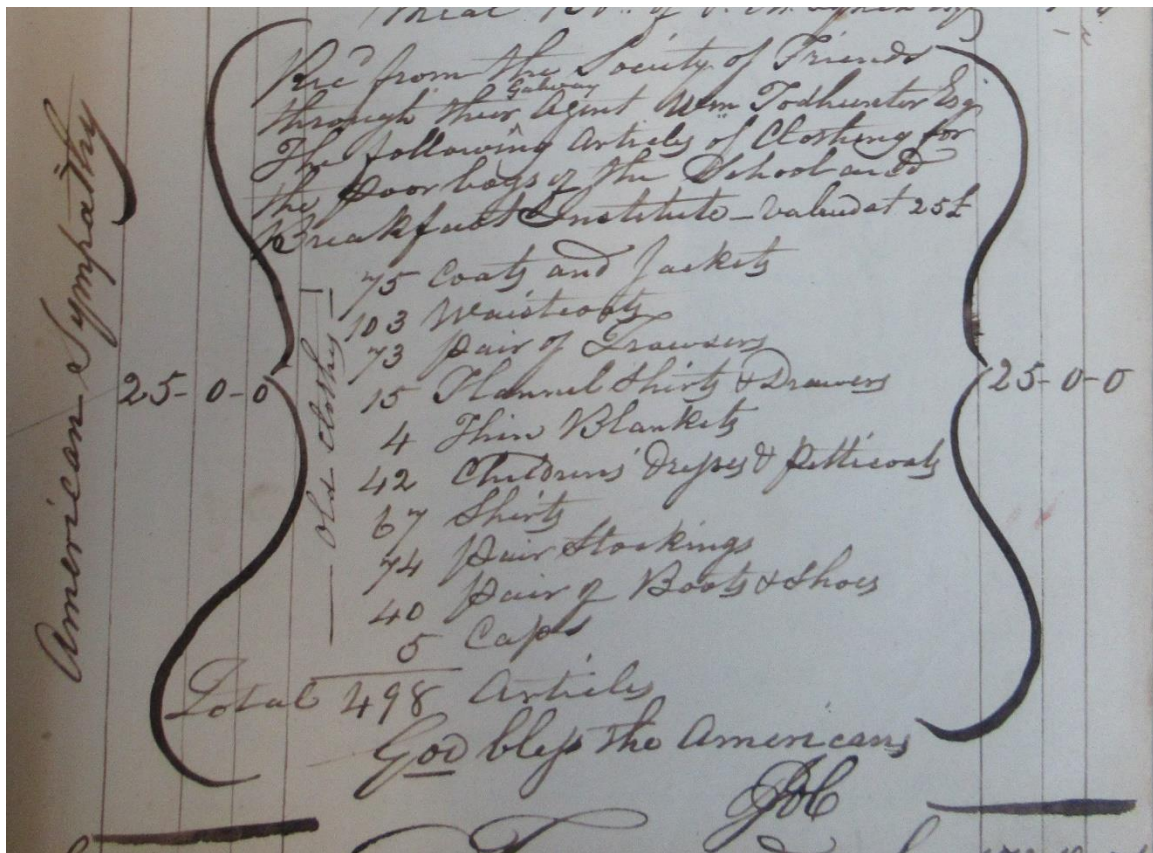 Recd from the Society of Friends
Galway
through their Agent Wm Todhunter Esqr
The following Articles of Clothing for
the poor boys of the School and
Breakfast Institute - valued at 25£
75 Coats and Jackets
103 Waistcoats
73 pair of Trowsers
15 Flannel Shirts & Drawers
4 Thin Blankets
42 Childrens' dresses & petticoats
67 Shirts
74 pair Stockings
40 pair of Boots & Shoes
5 Caps
Total 498 Articles
God bless the Americans
American Sympathy
25-0-0
old clothes
25-0-0